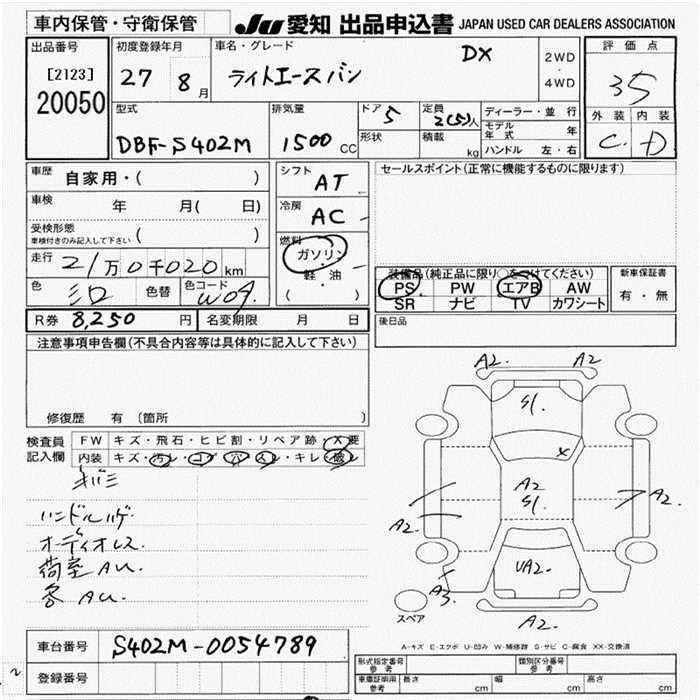 車内保管・守衛保管
JU 愛知 出品申込書 JAPAN USED CAR DEALERS ASSOCIATION
出品番号
[2123]
20050
初度登録年月
27 8月
車名・グレード
ライトエースバン DX
2WD
・
4WD
評価点
35
外装 内装
C. D
型式
DBF-S402M
排気量
1500 CC
ドア 5
形状
定員 2(5)人
積載 kg
ディーラー・並行
モデル年式 年
ハンドル 左・右
車歴 自家用・( )
車検 年 月( 日)
受検形態
車検付きのみ記入して下さい ( )
走行 21万0千020km
色 シロ 色替 色コード W09.
R券 8,250 円 名変期限 月 日
シフト
AT
冷房
AC
燃料
ガソリン
軽・油
( )
セールスポイント(正常に機能するものに限ります)
装備品(純正品に限り○をつけてください)
PS PW エアB AW
SR ナビ TV カワシート
新車保証書
有・無
後日品
注意事項申告欄(不具合内容等は具体的に記入して下さい)
修復歴 有 〔箇所 〕
検査員
記入欄
FW キズ・飛石・ヒビ割・リペア跡・X要
内装 キズ・汚レ・コゲ・穴・スレ・キレ・破レ
キバミ
ハンドルハゲ
オーディオレス.
荷室AU.
客AU.
A2. A2
S1.
X
A2
S1.
A2. A2.
UA2.
A3.
A2.
スペア
A-キズ E-エクボ U-凹み W-補修跡 S-サビ C-腐食 XX-交換済
車台番号 S402M-0054789
登録番号
形式指定番号
参考
類別区分番号
参考
車庫証明用
参考
長さ cm 幅 cm 高さ cm